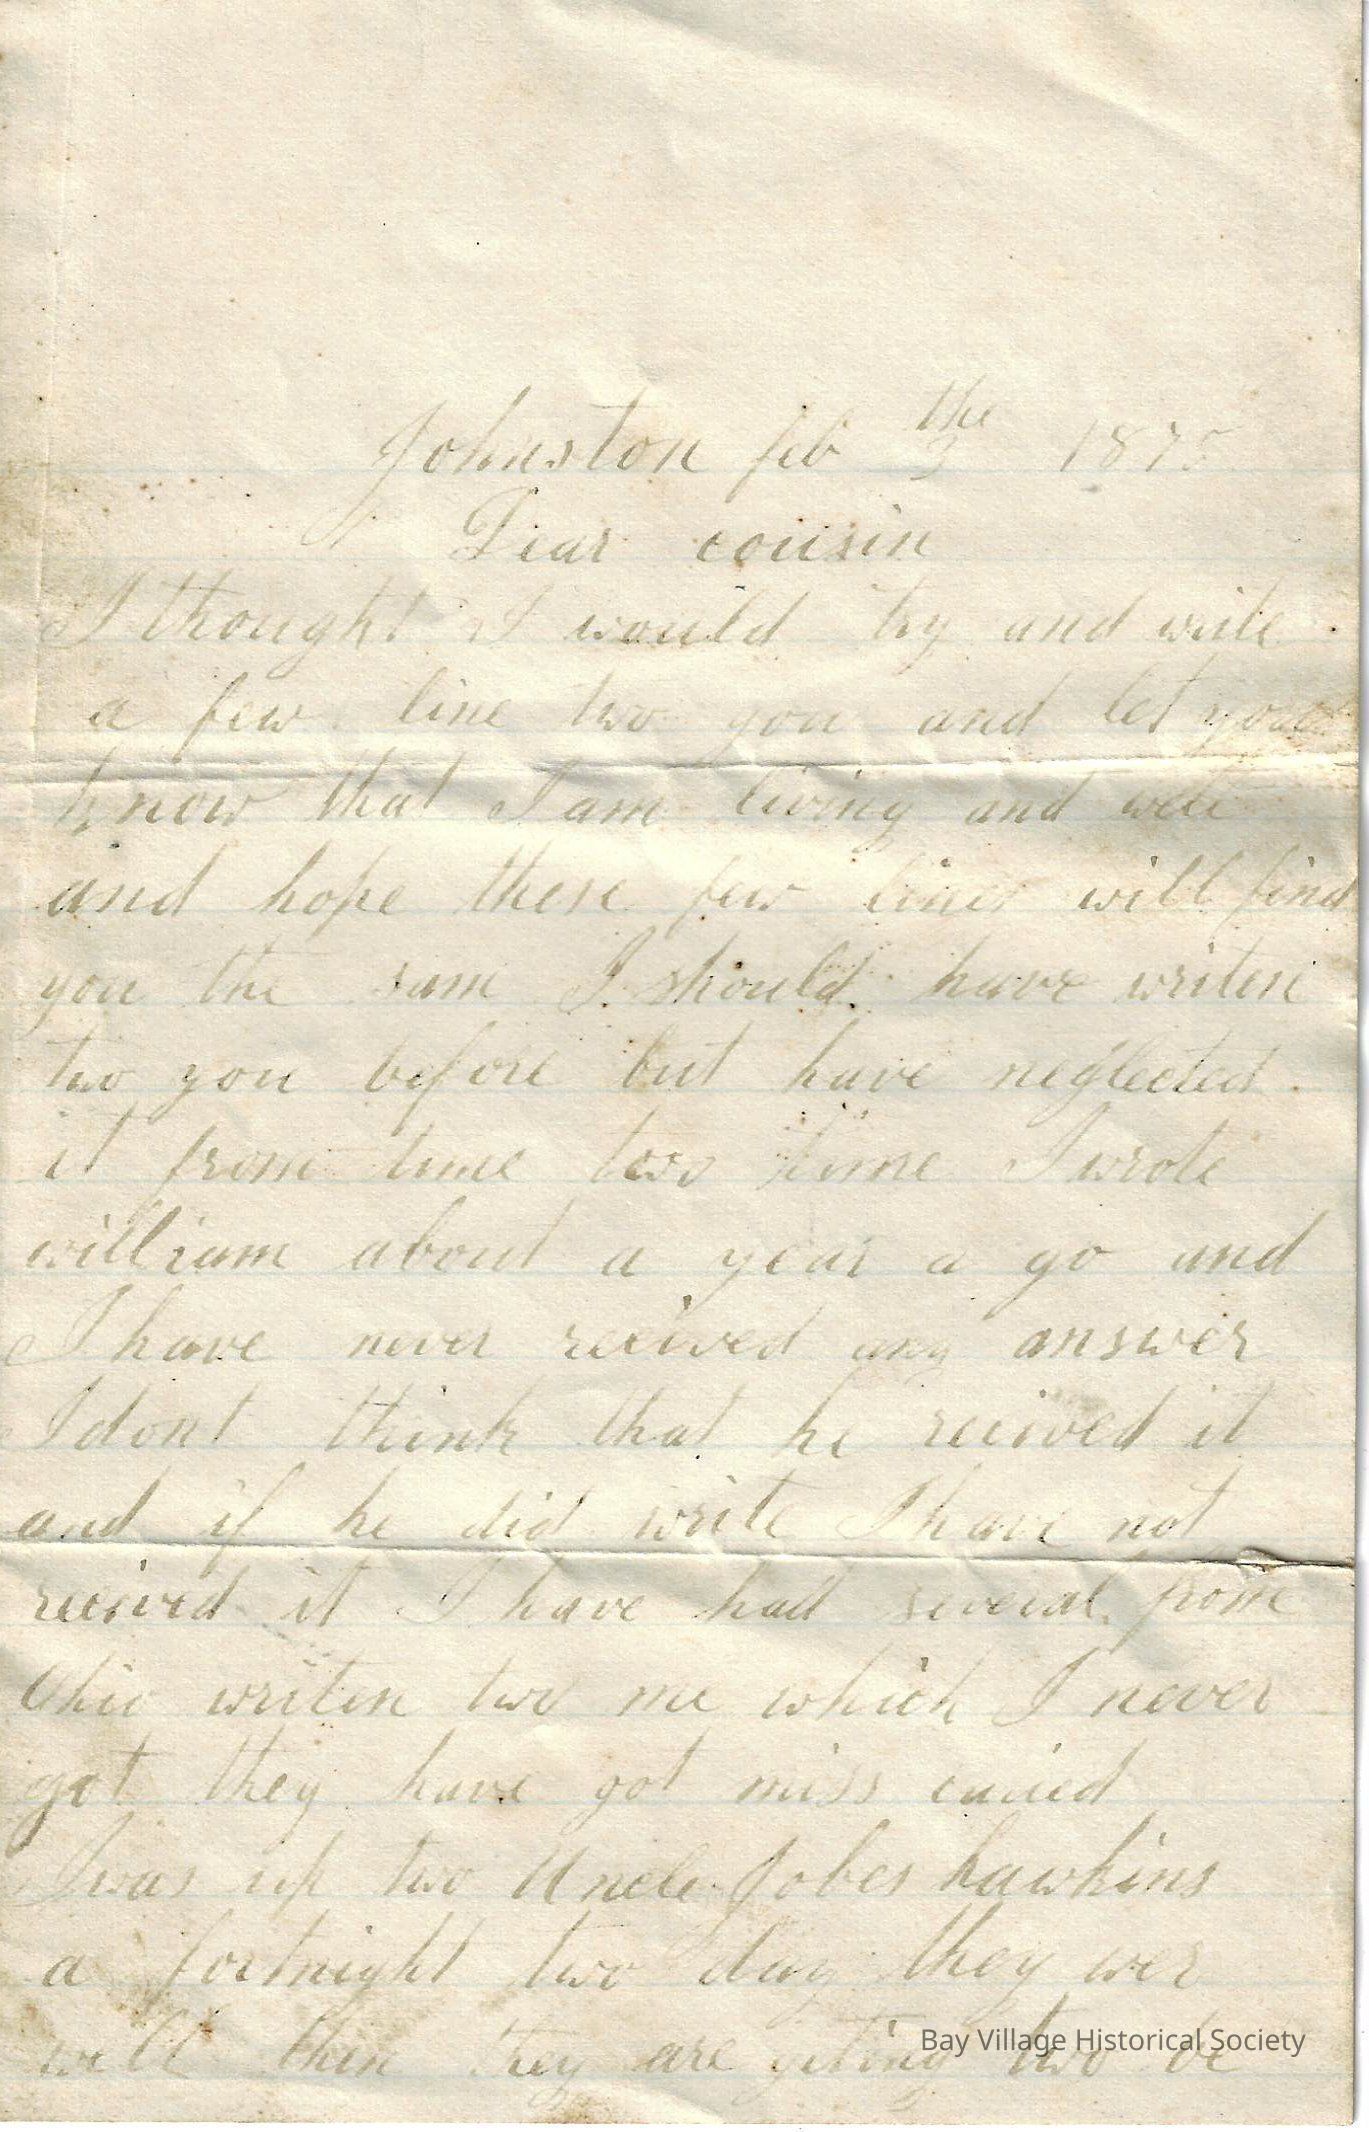 Johnston feb 3 the 1875
Dear cousin
I thought I would try and write
a few line two you and let you
know that I am living and well
and hope these few lines will find
you the sam I should have writen
two you before but have neglected
it from time two time I wrote
william about a year a go and
I have never recived any answer
I dont think that he recived it
and if he did write I have not
recived it I have had several from
Ohio writen two me which I never
got they have got miss caried
I was up two Uncle Jobes hawkins
a fortnight two day they wer
well then they are geting two be
Bay Village Historical Society